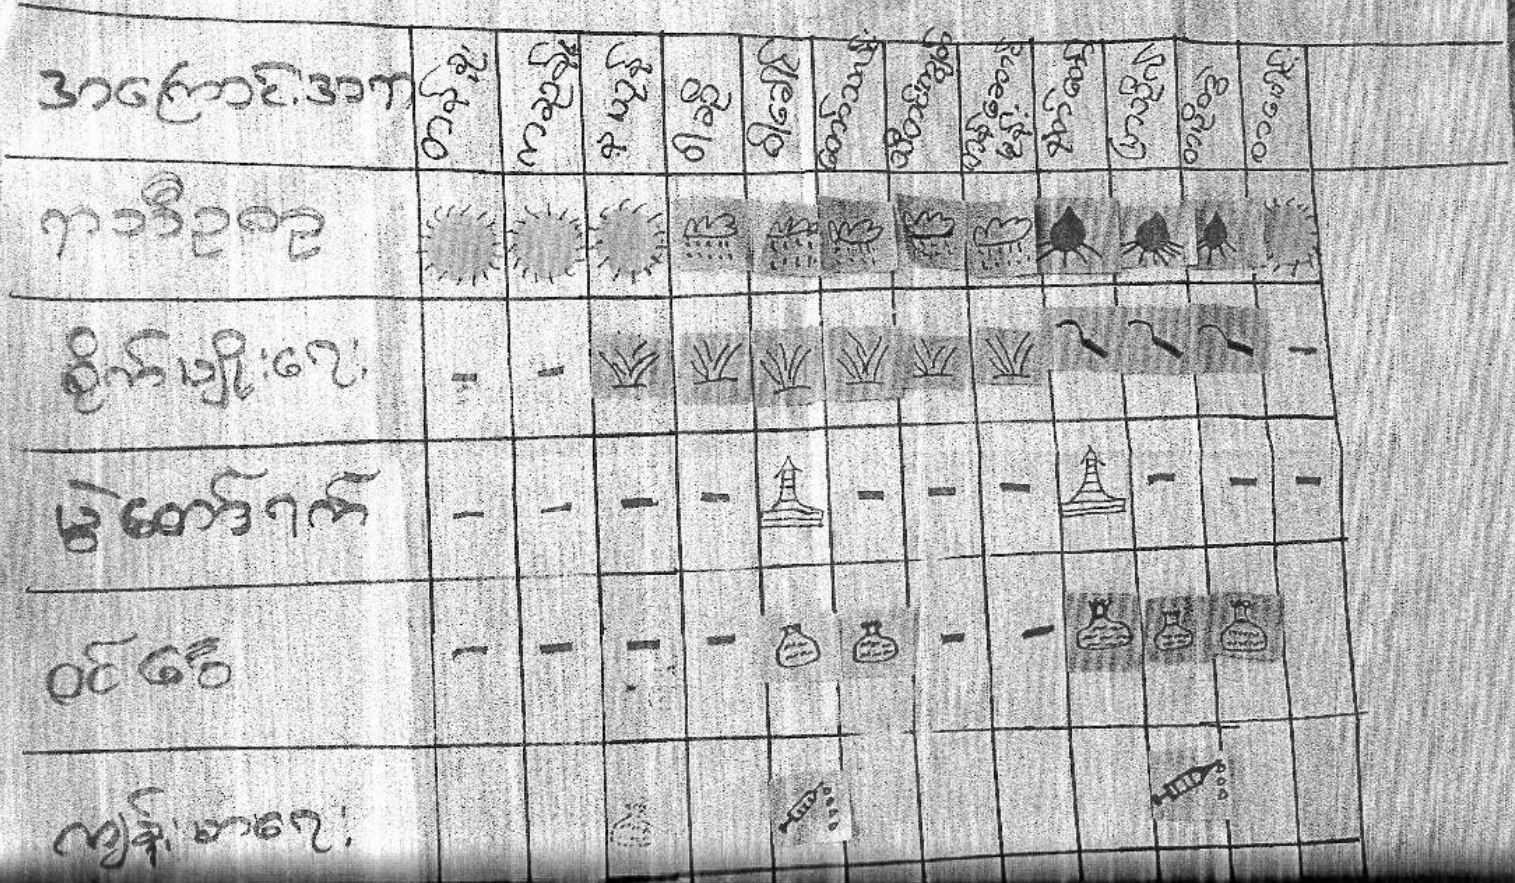 အကြောင်းအရာ တန်ခူး ကဆုန် နယုန် ဝါဆို ဝါခေါင် တော်သလင်း သီတင်းကျွတ် တန်ဆောင်မုန်း နတ်တော် ပြာသို တပို့တွဲ တပေါင်း
ရာသီဥတု
စိုက်ပျိုးရေး - - -
ပွဲတော်ရက် - - - - - - - - - -
ဝင်ငွေ - - - - - -
ကျန်းမာရေး